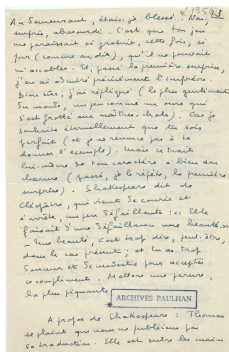 Au demeurant, étais-je blessé ? Non,
surpris, abasourdi. C'est que ton jeu
me paraissait si gratuit, cette fois, si
pur (comme on dit), qu'il ne pouvait
m'accabler. Et passé la première surprise,
j'en ai admiré précisément l'
Bien sûr, j'ai répliqué (le plus sentiment
du monde, un peu comme un ours qui
s'est frotté aux maîtres-chats). Car je
souhaite éternellement que tu sois
parfait (et je renonce pas à te
donner l'exemple). Mais ce trait
lui-même de ton caractère a bien son
charme (passé, je le répète, la première
surprise). Shakespeare dit de
Cléopâtre, qui vient de courir et
s'arrête, un peu défaillante : .. Elle
faisait d'une défaillance une beauté..
- Une beauté, c'est trop dire, peut-être,
dans le cas présent : et tu as trop
de modestie pour accepter
ce compliment. Mettons une parure,
la plus piquante
ARCHIVES PAULHAN
A propos de Shakespeare : Thomas
se plaint que nous ne publiions pas
sa traduction. Elle est entre les mains